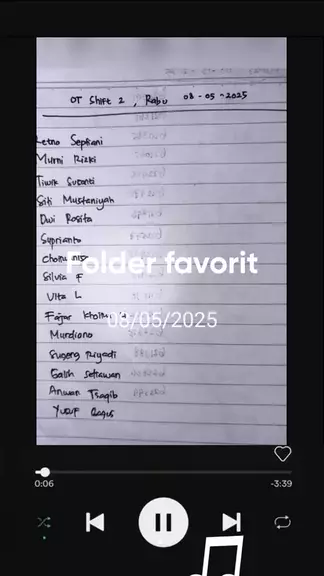 OT Shift 2, Rabu 08-05-2025
Retno Septiani
Murni Rizki
Tiwik Suranti
Siti Mustaniyah
Dwi Rosita
Suprianto
Silvia F
Vita L
Folder favorit
08/05/2025
Fajar
Murdiono
Sugeng Riyadi
Galih Setiawan
Anwan Tsaqib
Yusuf Bagus
0:06
-3:39